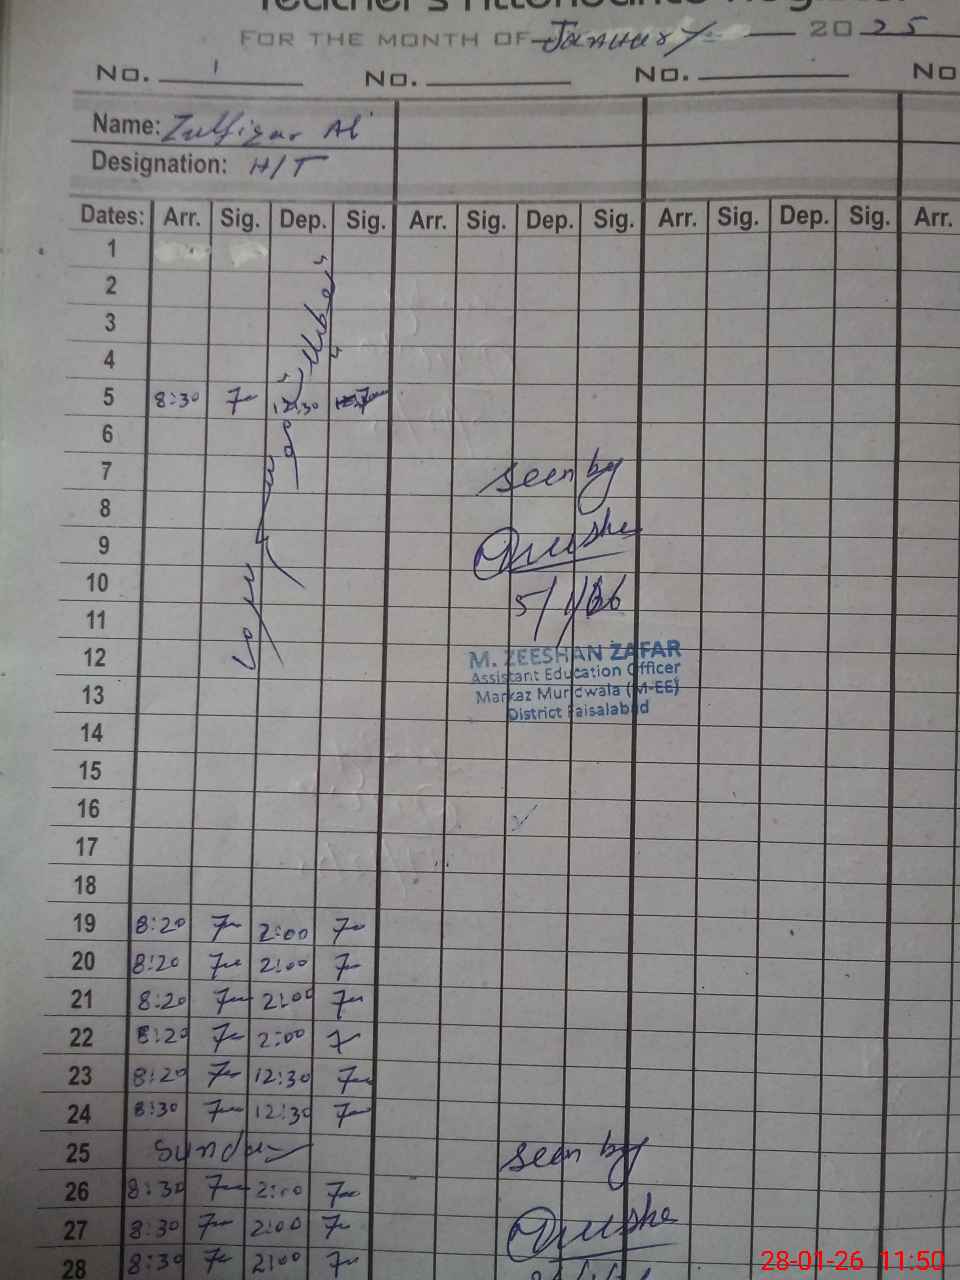 Teacher's Attendance Register
FOR THE MONTH OF January 2025
No. 1 No. No. No
Name: Zulfiqar Ali
Designation: H/T
Dates: Arr. Sig. Dep. Sig. Arr. Sig. Dep. Sig. Arr. Sig. Dep. Sig. Arr.
1
2
3
4
5 8:30 12:30
6
7 seen by
8
9
10 5/1/26
11
12 M. ZEESHAN ZAFAR
Assistant Education Officer
13 Markaz Muridwala (M-EE)
District Faisalabad
14
15
16
17
18
19 8:20 2:00
20 8:20 2:00
21 8:20 2:00
22 8:20 2:00
23 8:20 12:30
24 8:30 12:30
25 Sunday seen by
26 8:30 2:00
27 8:30 2:00
28 8:30 2:00
28-01-26 11:50